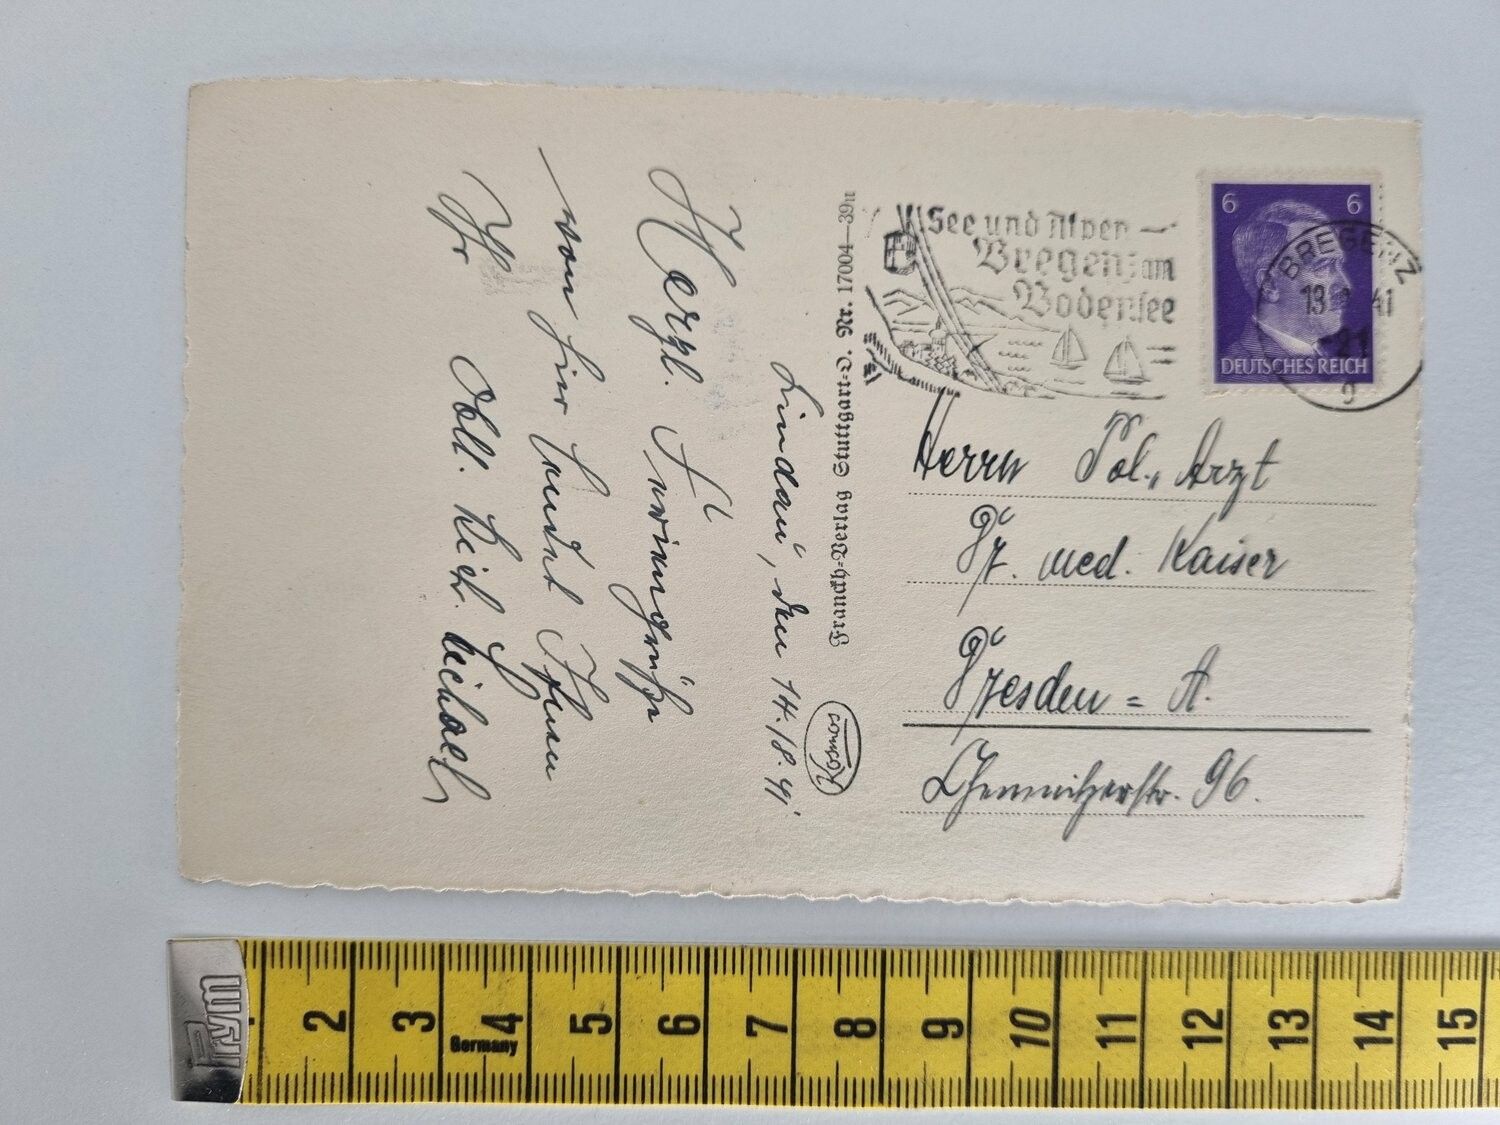 Lindau, den 14./8. 41
Herzl. Feriengrüße
von hier sendet Ihnen
Ihr
Franckh=Verlag Stuttgart=O. Nr. 17004—39u
Kosmos
See und Alpen —
Bregenz am
Bodensee
6 6
DEUTSCHES REICH
BREGENZ
13 41
g
Herrn Pol., Arzt
Dr. med. Kaiser
Dresden = A.
Chemnitzerstr. 96.
Prym
2 3 4 5 6 7 8 9 10 11 12 13 14 15
Germany